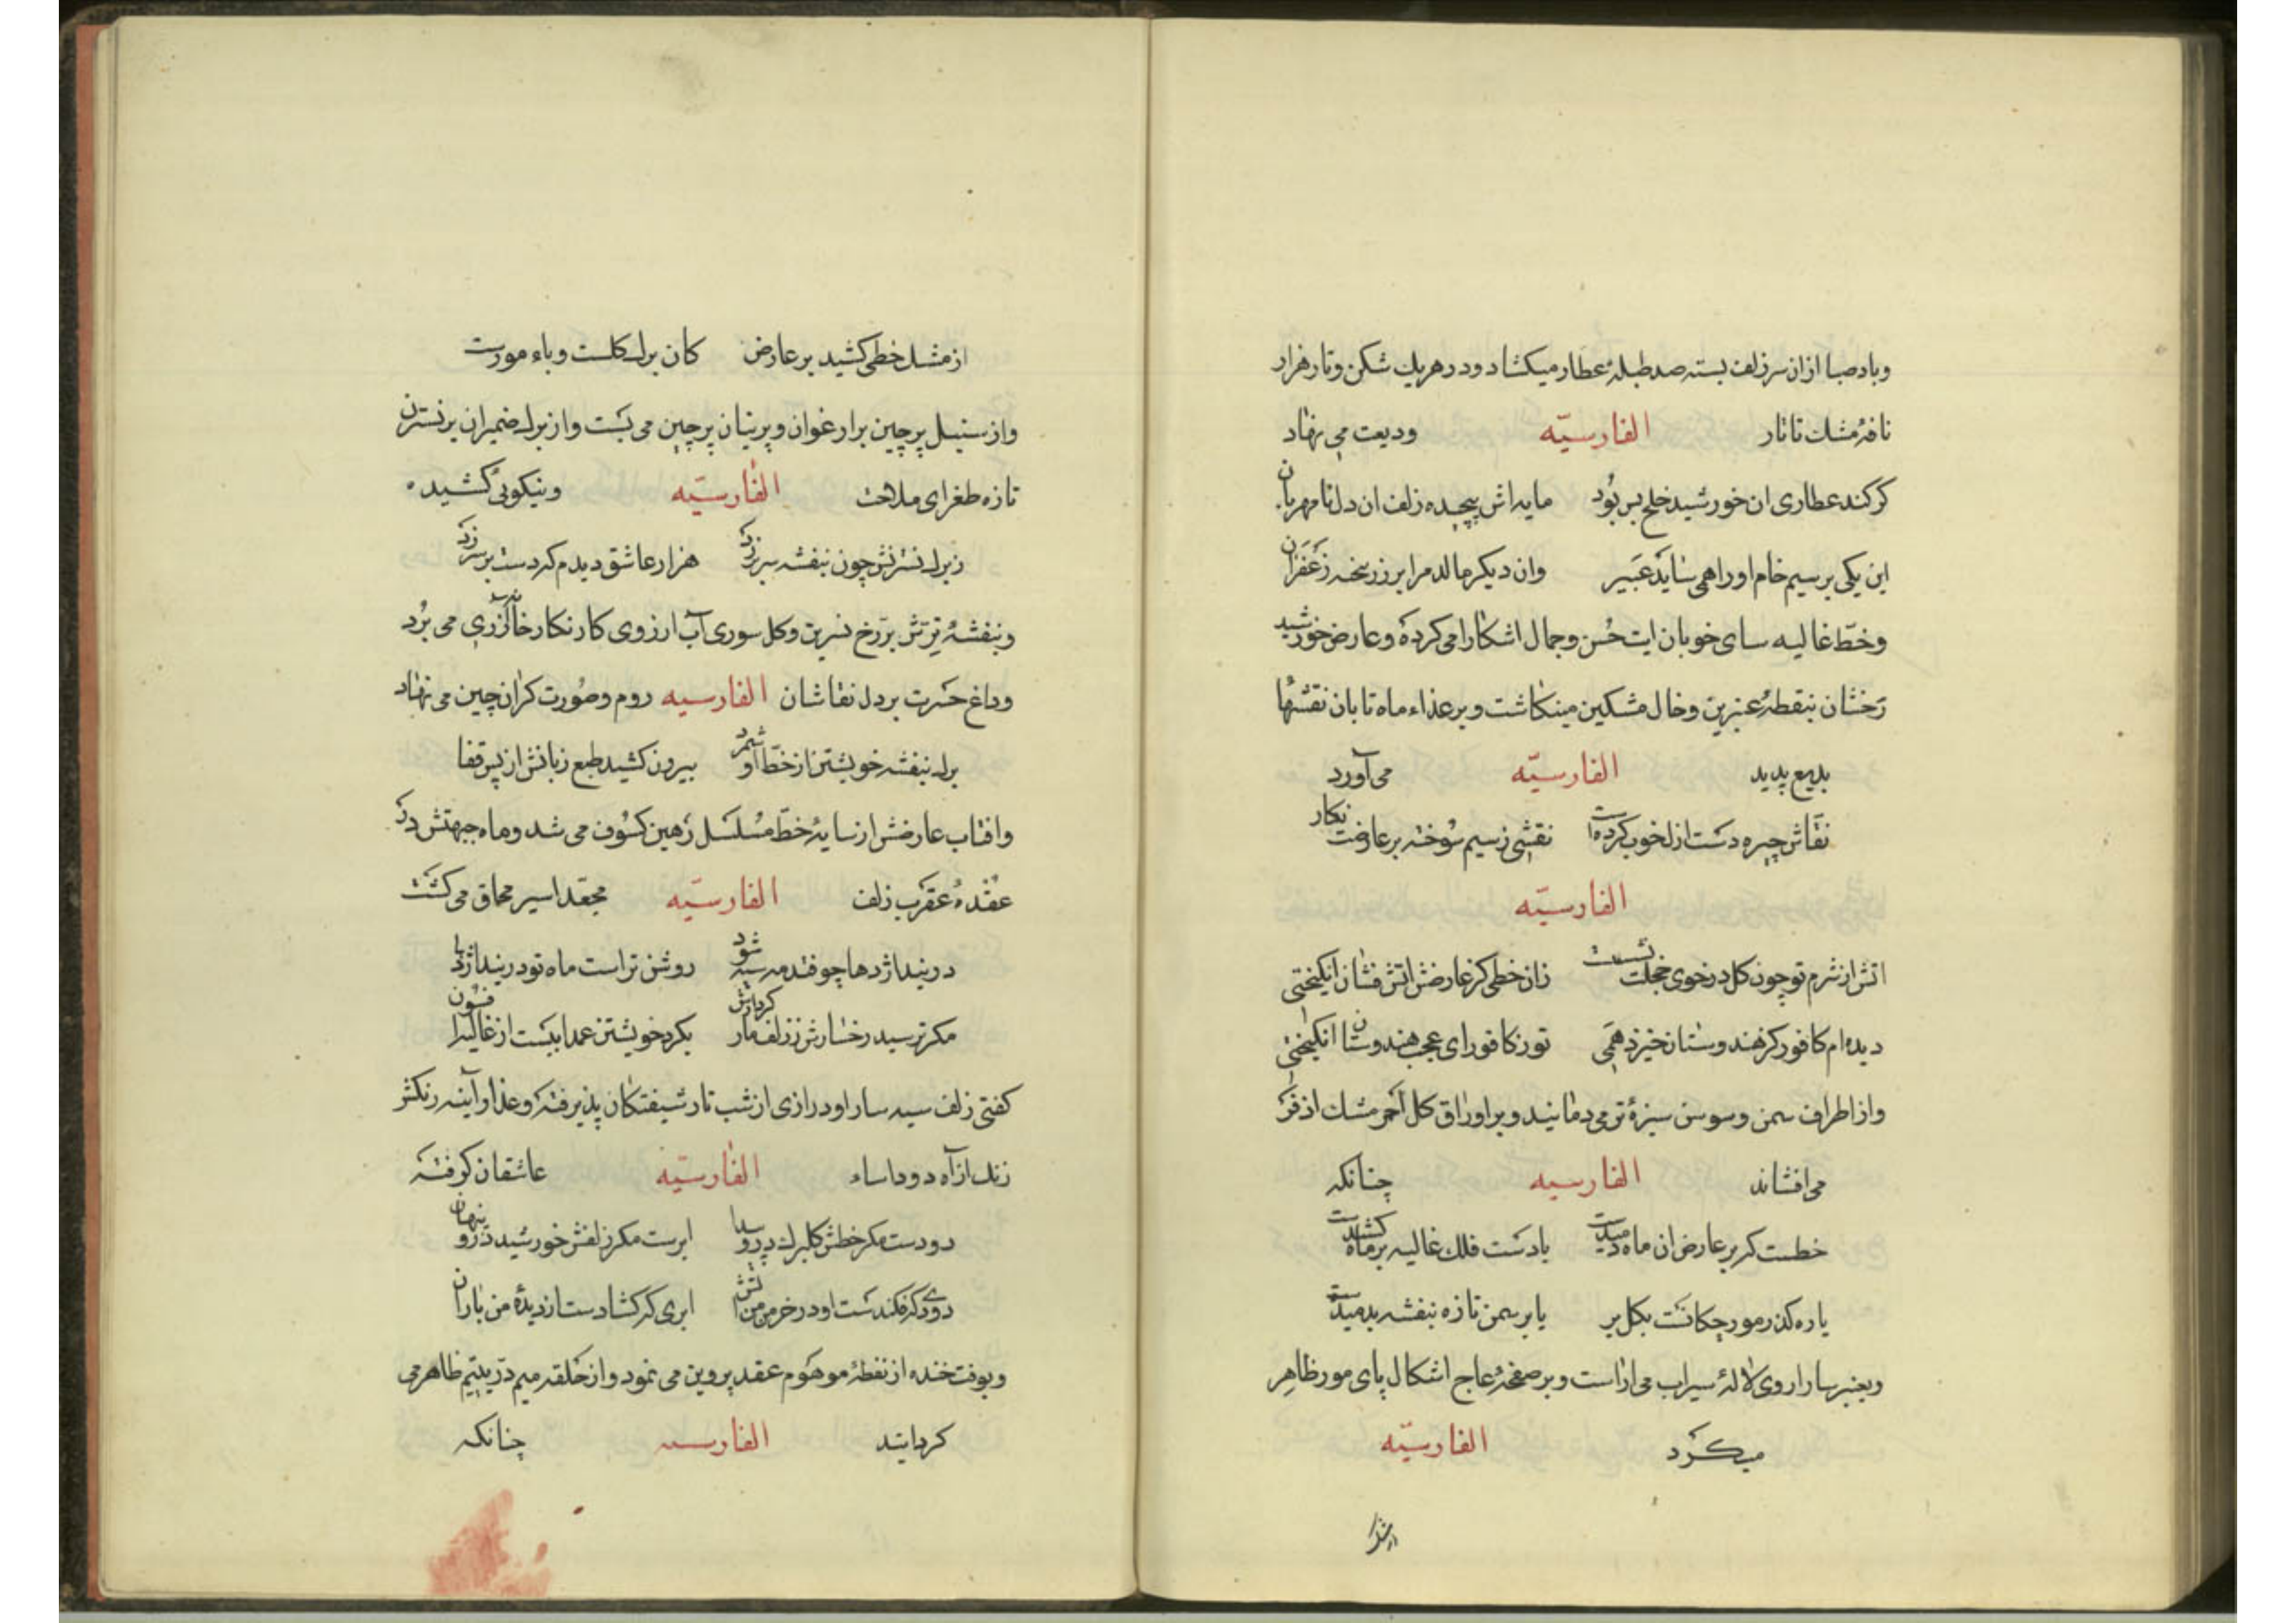 وباد صبا ازان سر زلف بسته صد طبلهٔ عطار میکشاد و در هریك شکن وتار هزار
نافهٔ مشك تاتار الفارسیّه ودیعت می نهاد
کر کند عطاری ان خورشید خلخ بس بُود مایه اش پیچیده زلف ان دل نامهربان
این یکی بر سیم خام او را همی سایَد عَبیر وان دیکر مالد مرا بر زر پخته زَعفَران
وخطّ غالیه سای خوبان ایت حُسن وجمال اشکارا می کرده وعارض خورشید
رَخشان بنقطهٔ عنبرین وخال مشکین مینکاشت وبر عذاء ماه تابان نقشهاُ
بدیع پدید الفارسیّه می آورد
نقّاش چیره دَست ازل خوب کرده است نقشی ز سیم سُوخته بر عارضت نکار
الفارسیّه
اتش از شرم تو چون کل در خوی خجلت نشست زان خطی کز عارض اتش فشان انکیختی
دیده ام کافور کز هندوستان خیزد همَی تو ز کافور ای عجب هندوستان انکیختی
واز اطراف سمن وسوسن سبزهٔ تر می دمانید وبر اوراق کل احمر مشك اذفَر
می افشاند الفارسیه چنانکه
خطست که بر عارض ان ماه دمیدست یا دَست فلك غالیه بر ماه کشیدست
یا ره کذر مورچکانَست بکل بر یا بر سمن تازه بنفشه بدمیدست
وبعنبر سارا روی لالهٔ سیراب می اراست وبر صفحهٔ عاج اشکال پای مور ظاهِر
میکَرد الفارسیّه
از مشك خطی کشید بر عارض کان برك کلست وباء مورست
واز سنبل پرچین بر ارغوان وپرنیان پرچین می بَست واز برك ضمیران بر نسترن
تازه طغرای ملاحت الفارسیّه ونیکویی کشیده
ز برك نسترنش چون بنفشه سر بر زد هزار عاشق دیدم که دست بر سر زد
وبنفشهٔ ترش بر رخ نسرین وکل سوری آب ارزوی کار نکار خانهٔ آزری می بُرد
وداغ حسرت بر دل نقاشان الفارسیه روم وصُورت کران چین می نهاد
برك بنفشه خویشتن از خطّ او شمرد بیرون کشید طبع زبانش از پس قفا
وافتاب عارضش از سایهٔ خطّ مُسلسَل رَهین کسُوف می شد وماه جبهتش در
عُقدهٔ عقرَب زلف الفارسیّه مجعّد اسیر محاق می کشت
در بند اژدها چو فتد مه سیه شود روشن تر است ماه تو در بند اژدها
مکر ترسید رخسارش ز زلف مار کردارش بکرد خویشتن عمدا ببَست از غالیه افسون
کفتی زلف سیه سار او درازی از شب تار شیفتکان پذیرفته وعذار آینه رنکش
زنك از آه دود اساء الفارسیّه عاشقان کرفته
دودست مکر خطش کلبرك درو پیدا ابرست مکر زلفش خورشید درو پنهان
دودی که فکندَست او در خرمن من اتش ابری که کشادست از دیدهٔ من باران
وبوقت خنده از نقطهٔ موهوم عقد پروین می نمود واز حَلقه میم درّ یتیم ظاهر می
کردانید الفارسیه چنانکه